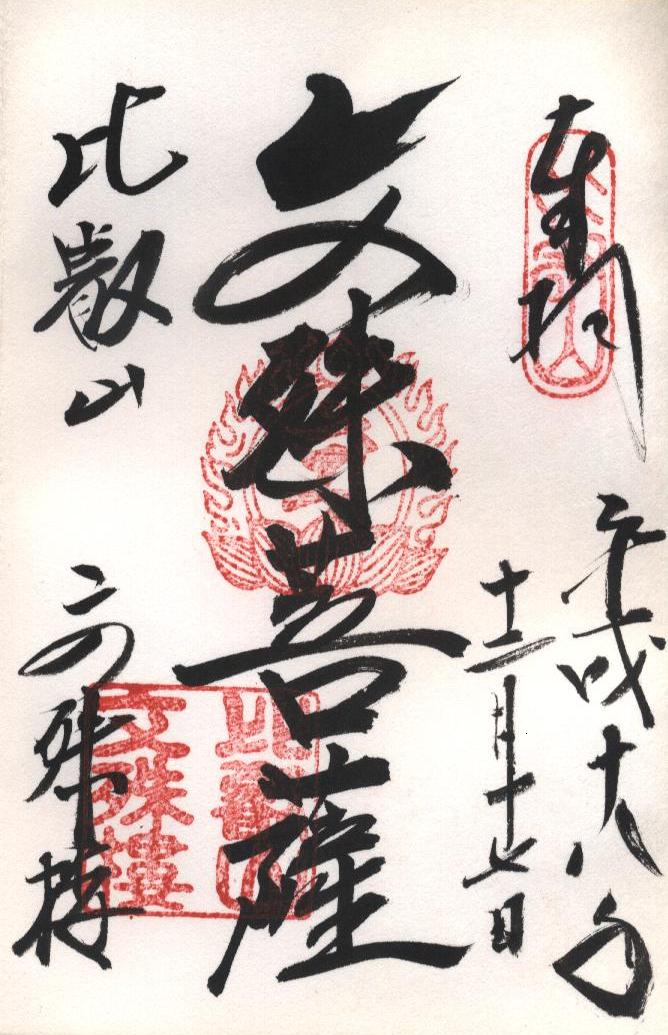 奉拝
平成十八年
十二月十七日
文殊菩薩
比叡山
文殊楼
比叡山
文殊樓